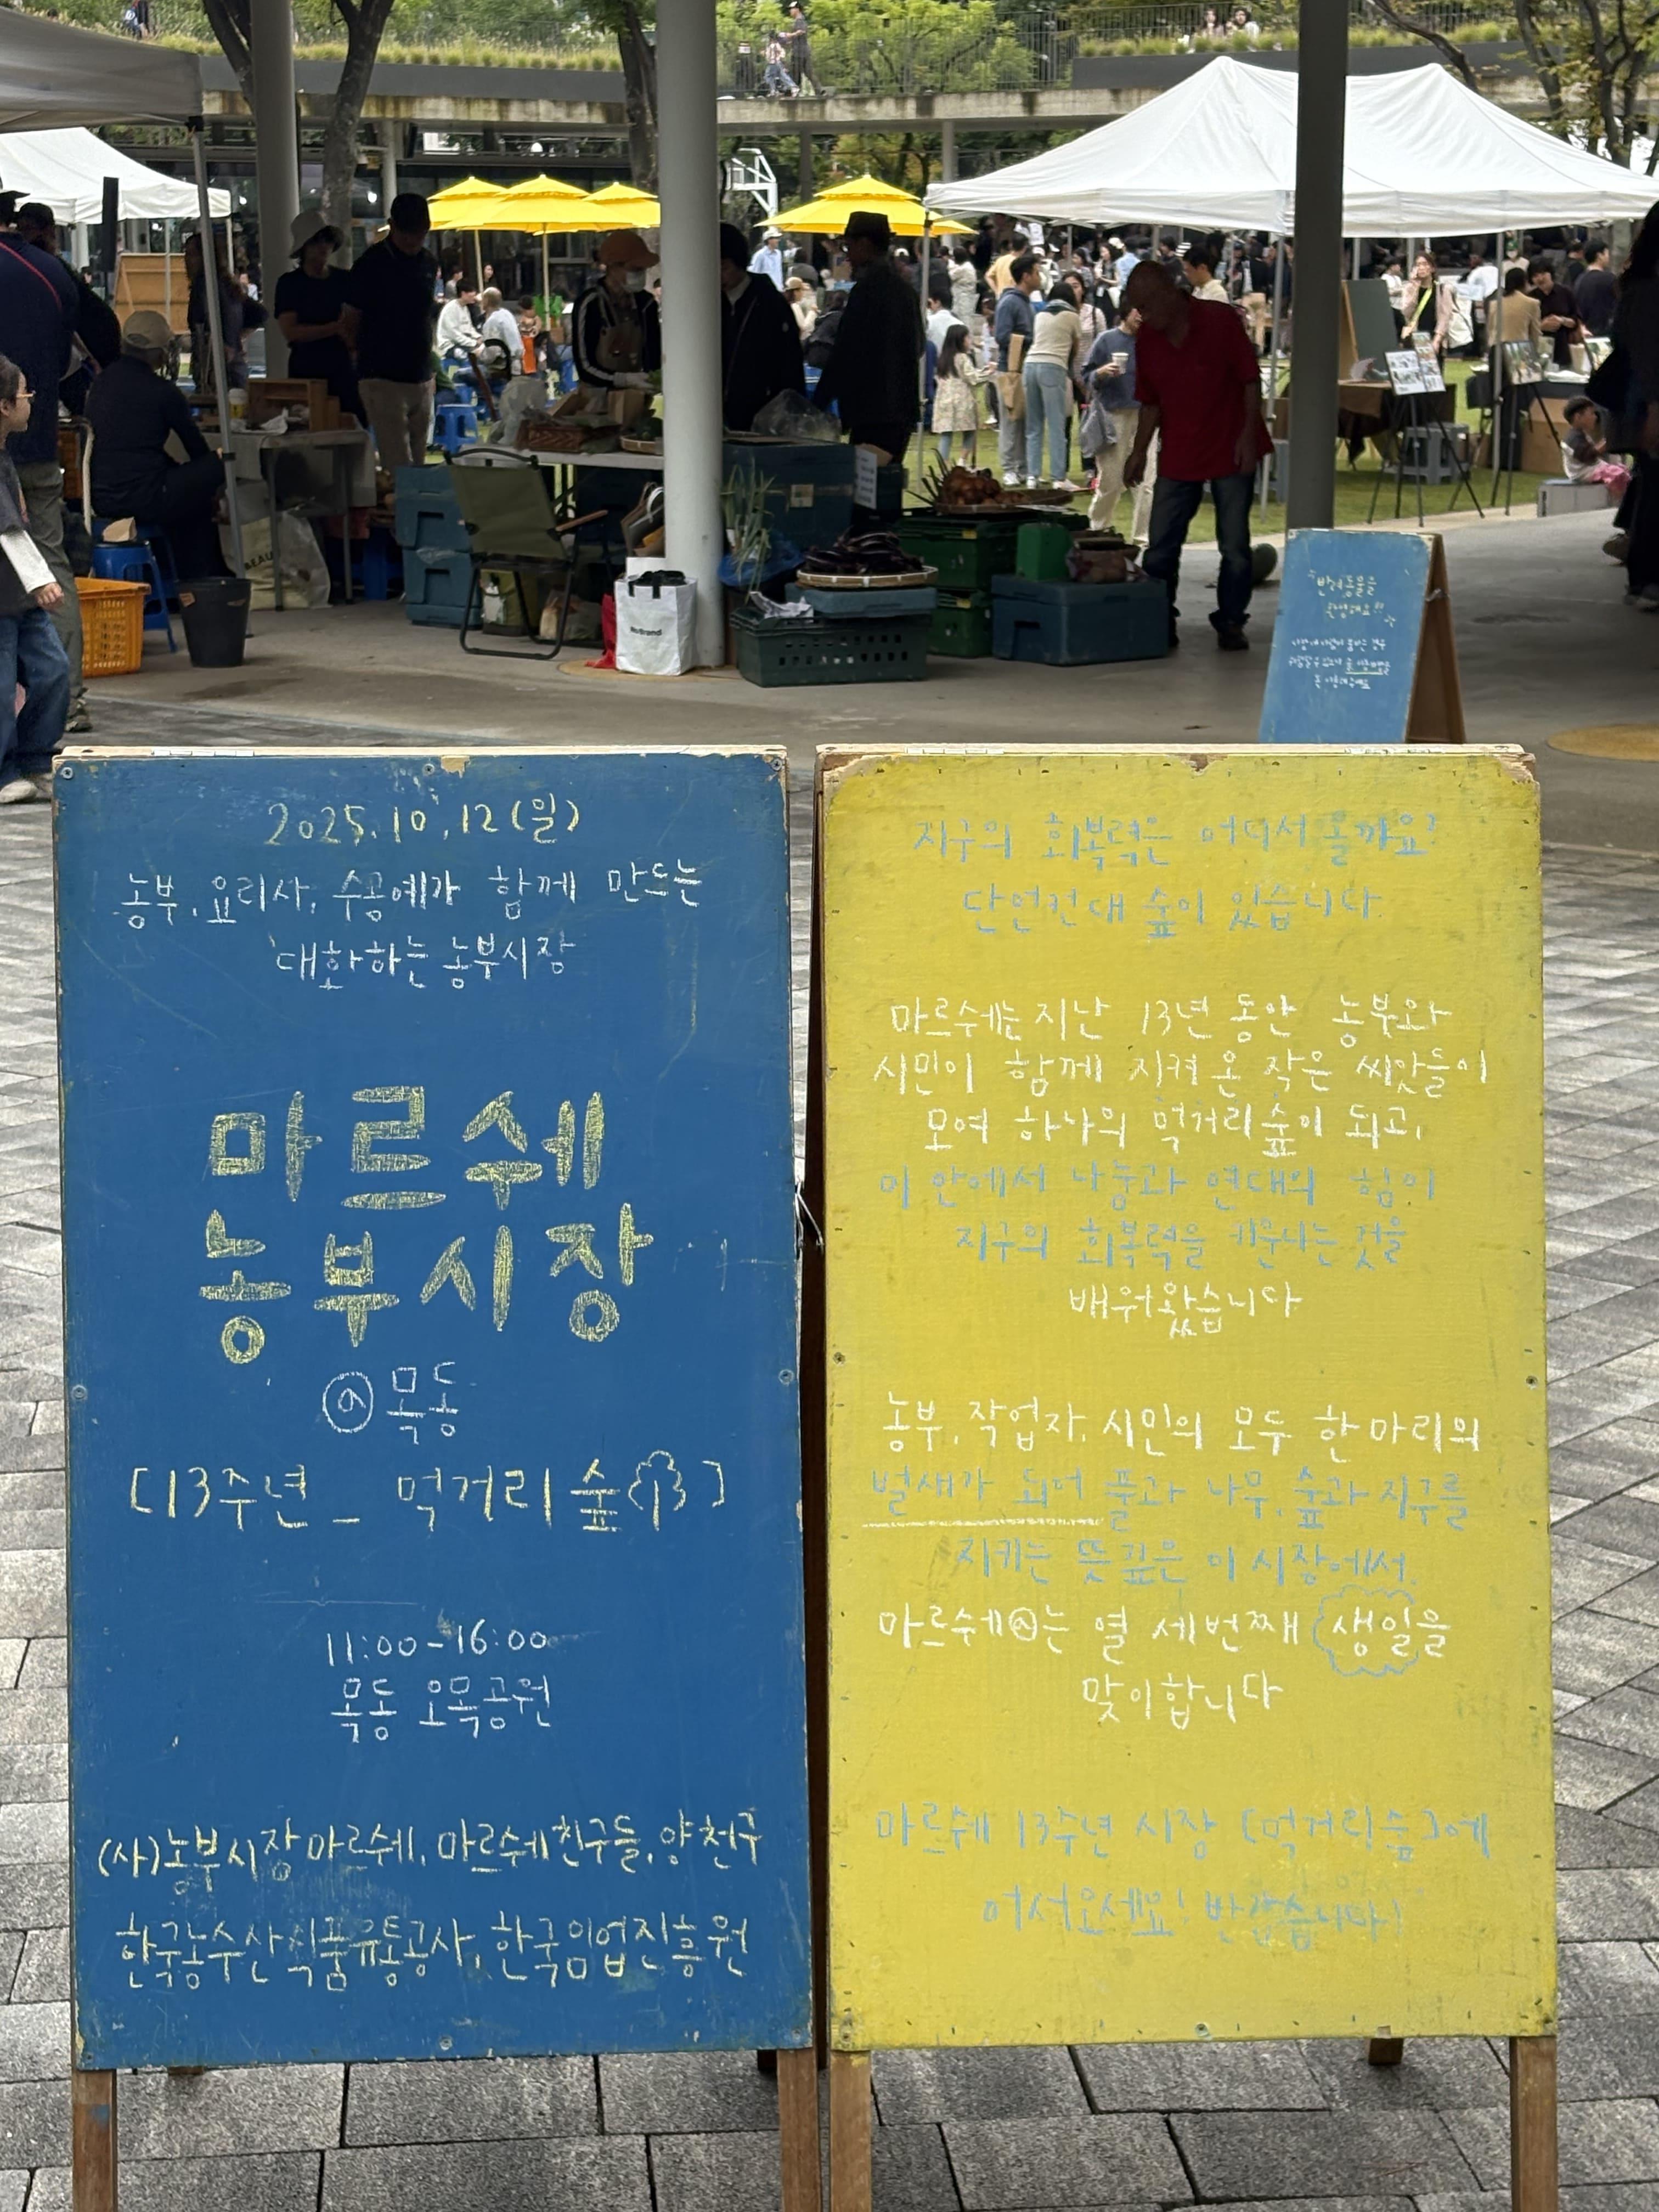 2025.10.12(일)
농부, 요리사, 수공예가 함께 만드는
대화하는 농부시장
마르쉐
농부시장
@목동
[13주년_ 먹거리숲]
11:00-16:00
목동 오목공원
(사)농부시장마르쉐, 마르쉐친구들, 양천구
한국농수산식품유통공사, 한국임업진흥원
지구의 회복력은 어디서 올까요?
단언컨대 숲이 있습니다
마르쉐는 지난 13년 동안 농부와
시민이 함께 지켜온 작은 씨앗들이
모여 하나의 먹거리숲이 되고,
이 안에서 나눔과 연대의 힘이
지구의 회복력을 키운다는 것을
배워왔습니다
농부, 작업자, 시민의 모두 한 마리의
벌새가 되어 풀과 나무, 숲과 지구를
지키는 뜻깊은 이 시장에서
마르쉐@는 열 세번째 생일을
맞이합니다
마르쉐 13주년 시장 [먹거리숲]에
어서오세요! 반갑습니다!
반려동물을